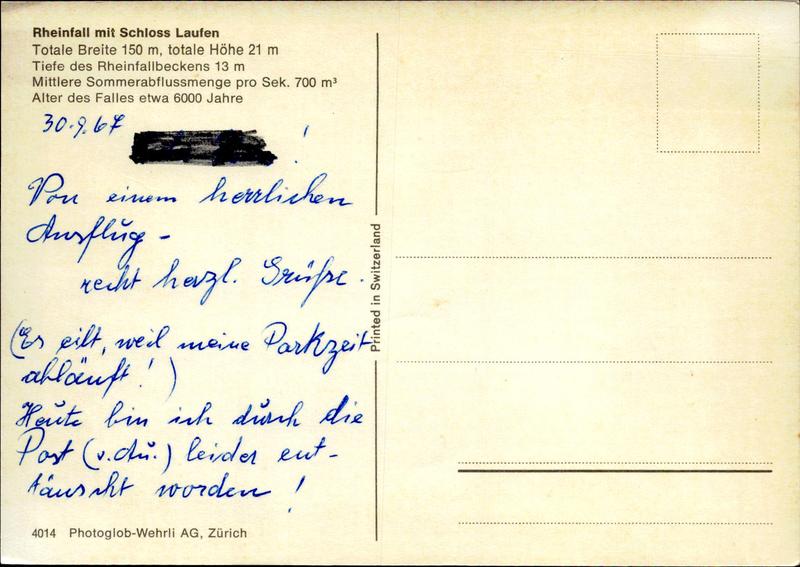 Rheinfall mit Schloss Laufen
Totale Breite 150 m, totale Höhe 21 m
Tiefe des Rheinfallbeckens 13 m
Mittlere Sommerabflussmenge pro Sek. 700 m³
Alter des Falles etwa 6000 Jahre
30.9.67
!
Von einem herrlichen
Ausflug -
recht herzl. Grüße.
(Es eilt, weil meine Parkzeit
abläuft!)
Heute bin ich durch die
Post (v. du.) leider ent-
täuscht worden!
4014 Photoglob-Wehrli AG, Zürich
Printed in Switzerland